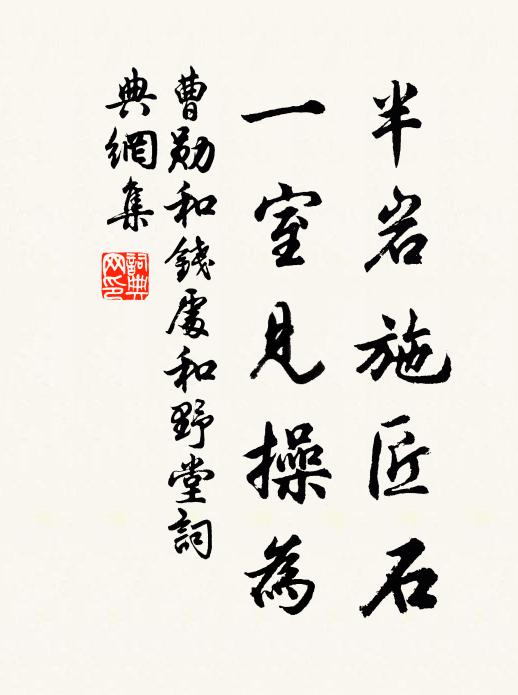 半岩施匠石
一室見操為
曹勛和錢處和野堂詞
典網集
詞典網印